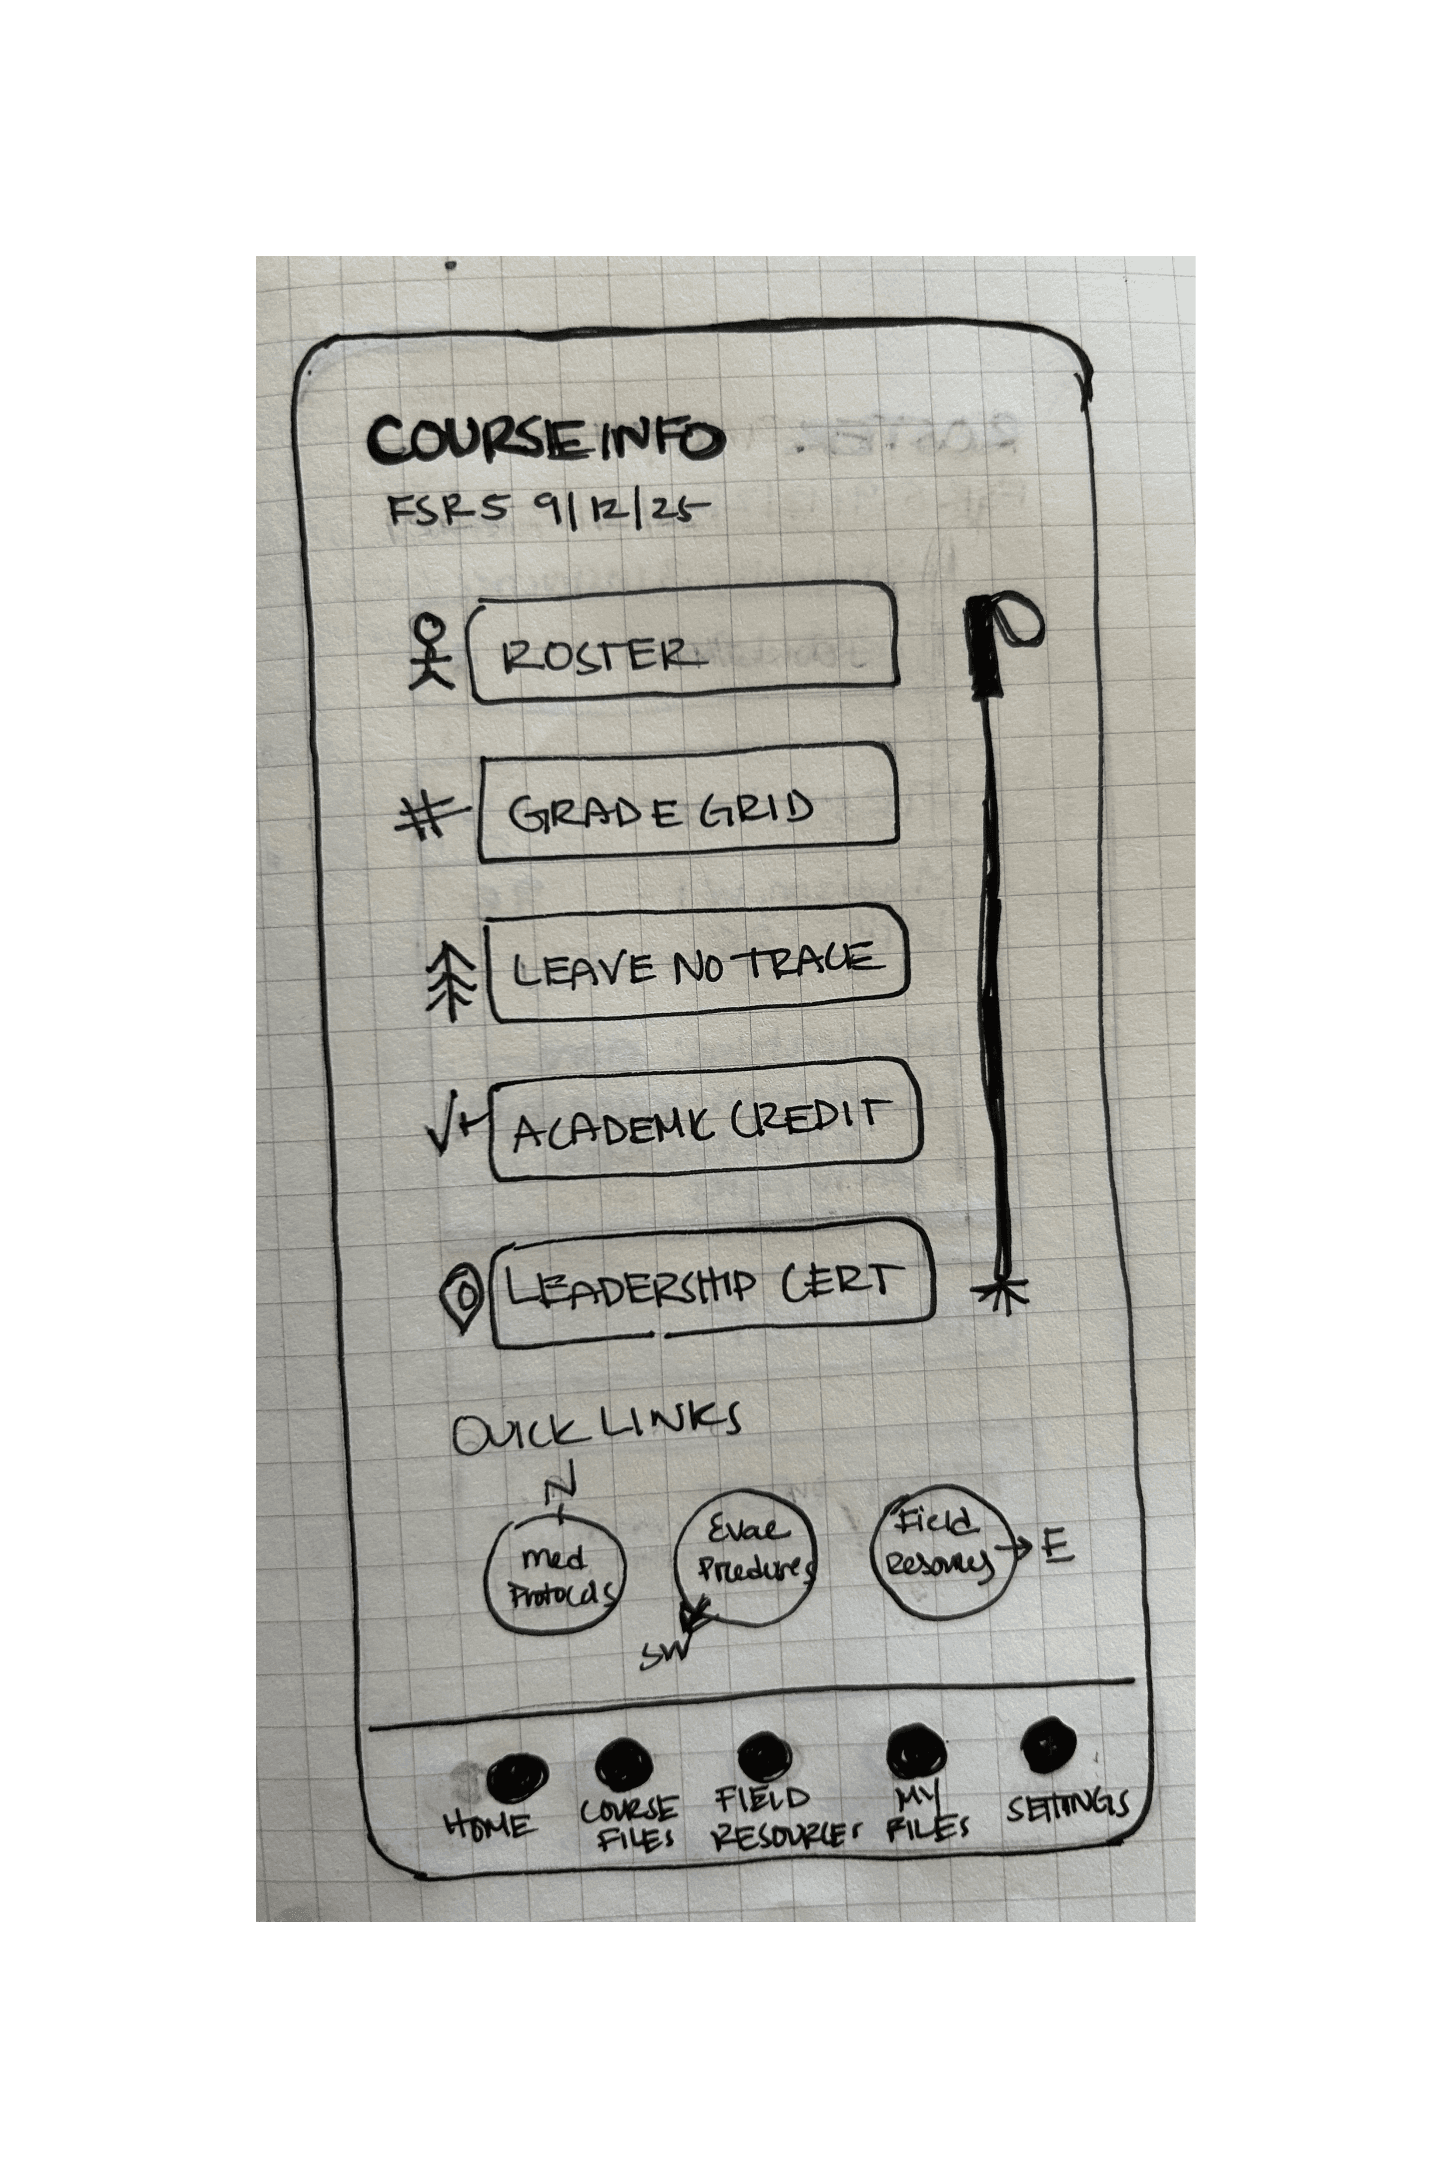 COURSE INFO
FSR5 9/12/25
ROSTER
# GRADE GRID
LEAVE NO TRACE
√+ ACADEMIC CREDIT
LEADERSHIP CERT
QUICK LINKS
N
Med
Protocols
Evac
Prcedures
SW
Field
Resources
E
HOME
COURSE
FILES
FIELD
RESOURCES
MY
FILES
SETTINGS